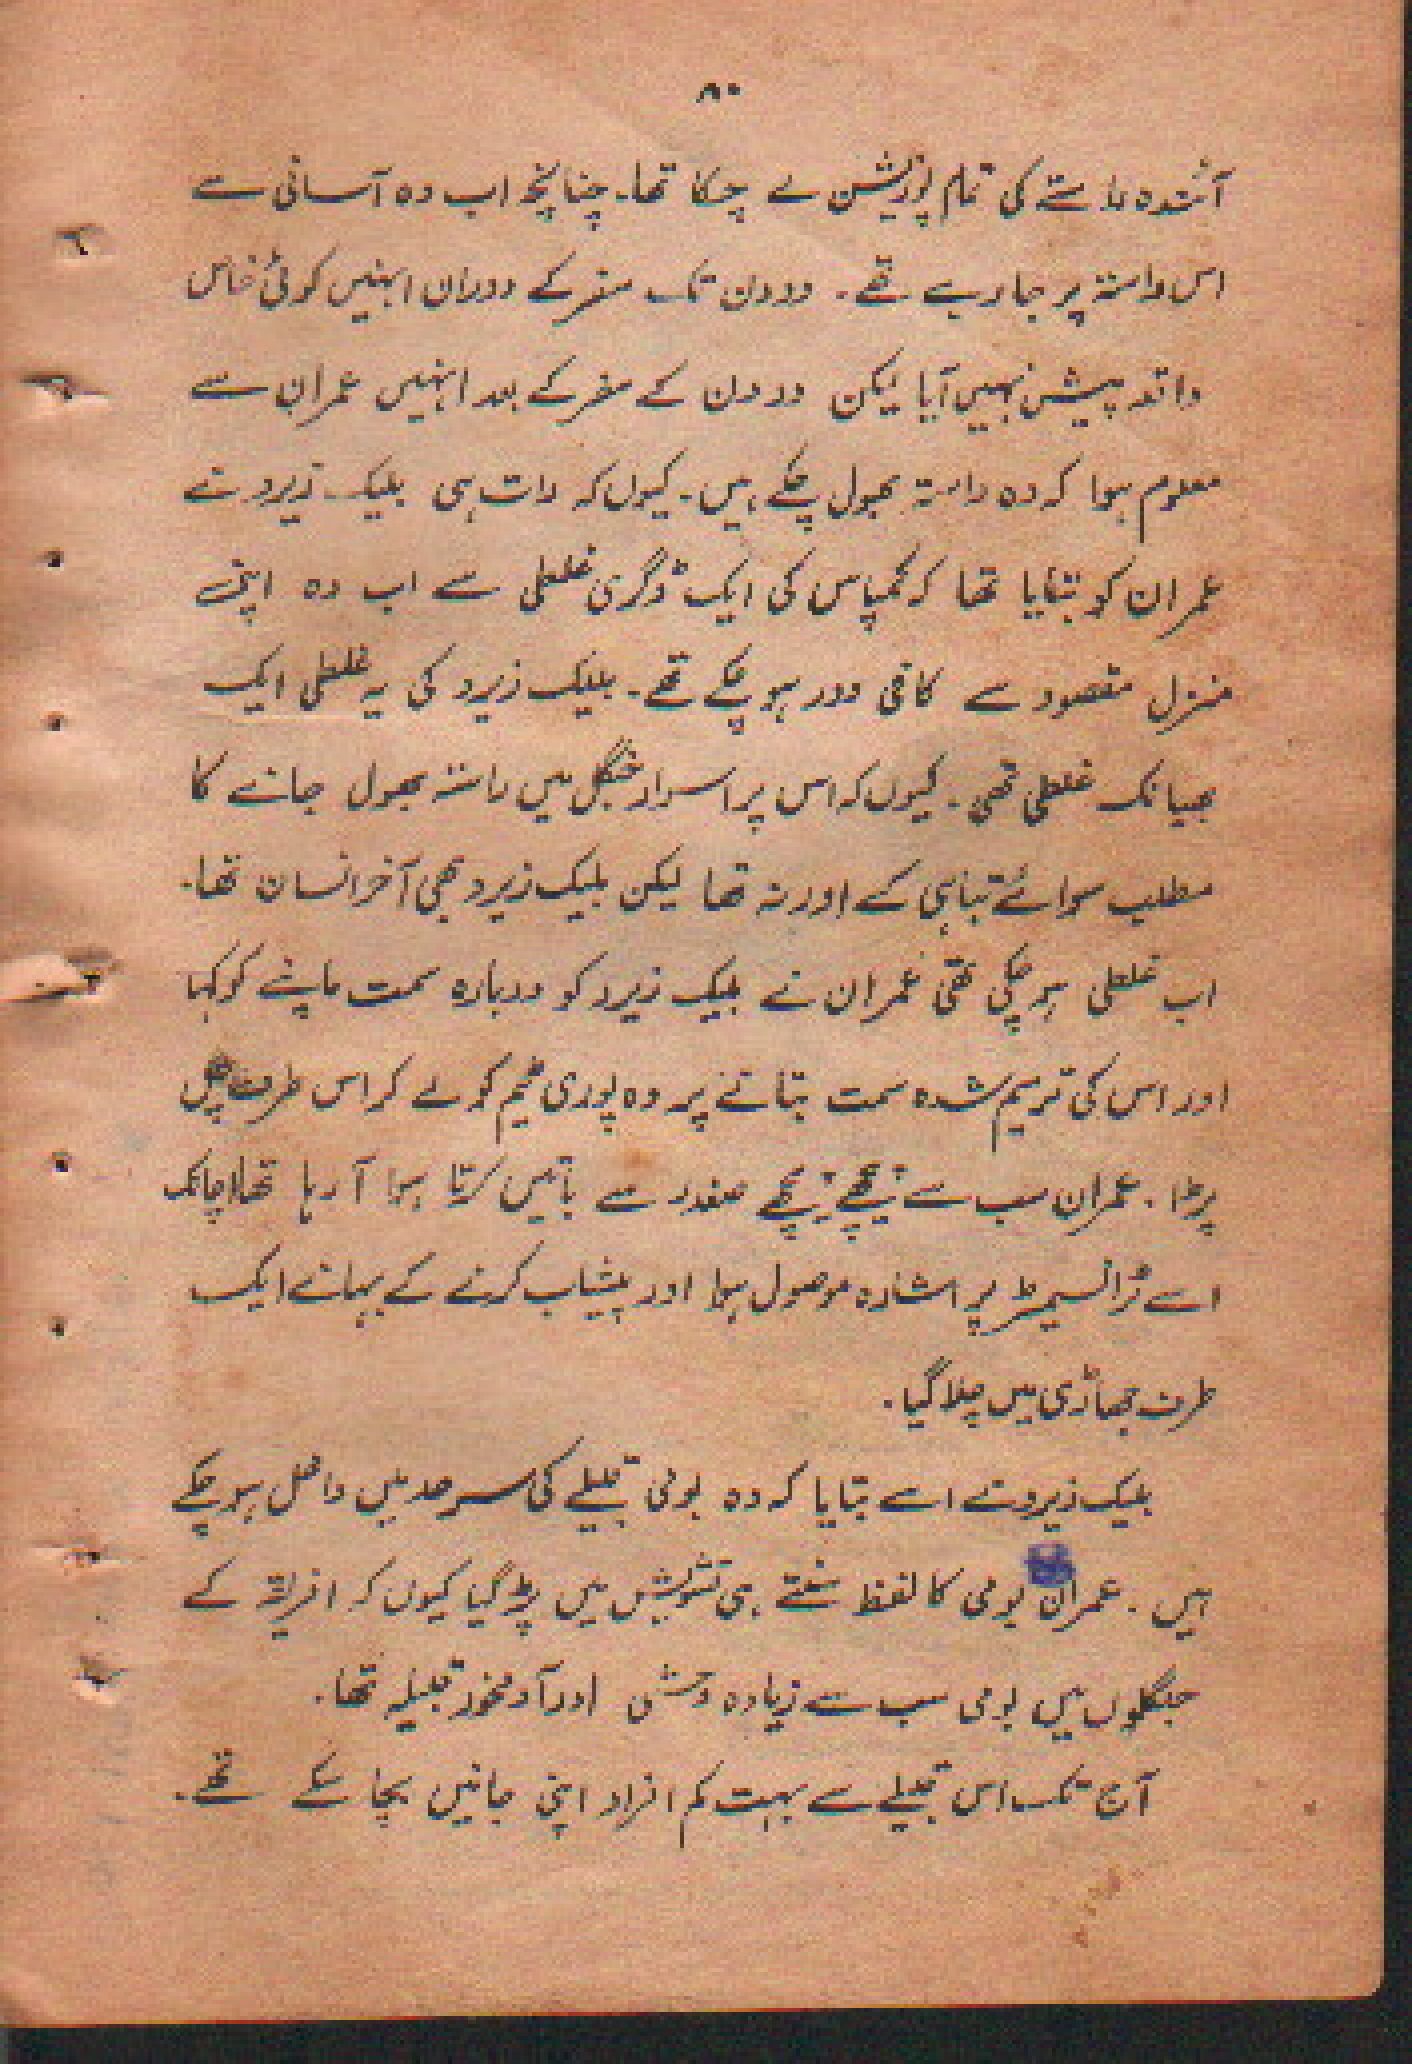 ۸۰
آئندہ راستے کی تمام پوزیشن لے چکا تھا۔ چنانچہ اب وہ آسانی سے
اس راستہ پر جا رہے تھے۔ دو دن تک سفر کے دوران انہیں کوئی خاص
واقعہ پیش نہیں آیا لیکن دو دن کے سفر کے بعد انہیں عمران سے
معلوم ہوا کہ وہ راستہ بھول چکے ہیں۔ کیوں کہ رات ہی بلیک زیرو نے
عمران کو بتایا تھا کہ کمپاس کی ایک ڈگری غلطی سے اب وہ اپنی
منزل مقصود سے کافی دور ہو چکے تھے۔ بلیک زیرو کی یہ غلطی ایک
بھیانک غلطی تھی۔ کیوں کہ اس پر اسرار جنگل میں راستہ بھول جانے کا
مطلب سوائے تباہی کے اور نہ تھا لیکن بلیک زیرو بھی آخر انسان تھا۔
اب غلطی ہو چکی تھی عمران نے بلیک زیرو کو دوبارہ سمت ماپنے کو کہا
اور اس کی ترمیم شدہ سمت بتانے پر وہ پوری ٹیم کو لے کر اس طرف چل
پڑا۔ عمران سب سے پیچھے پیچھے صفدر سے باتیں کرتا ہوا آ رہا تھا اچانک
اسے ٹرانسمیٹر پر اشارہ موصول ہوا اور پیشاب کرنے کے بہانے ایک
طرف جھاڑی میں چلا گیا۔
بلیک زیرو نے اسے بتایا کہ وہ بومی قبیلے کی سرحد میں داخل ہو چکے
ہیں۔ عمران بومی کا لفظ سنتے ہی تشویش میں پڑ گیا کیوں کہ افریقہ کے
جنگلوں میں بومی سب سے زیادہ وحشی اور آدمخور قبیلہ تھا۔
آج تک اس قبیلے سے بہت کم افراد اپنی جانیں بچا سکے تھے۔